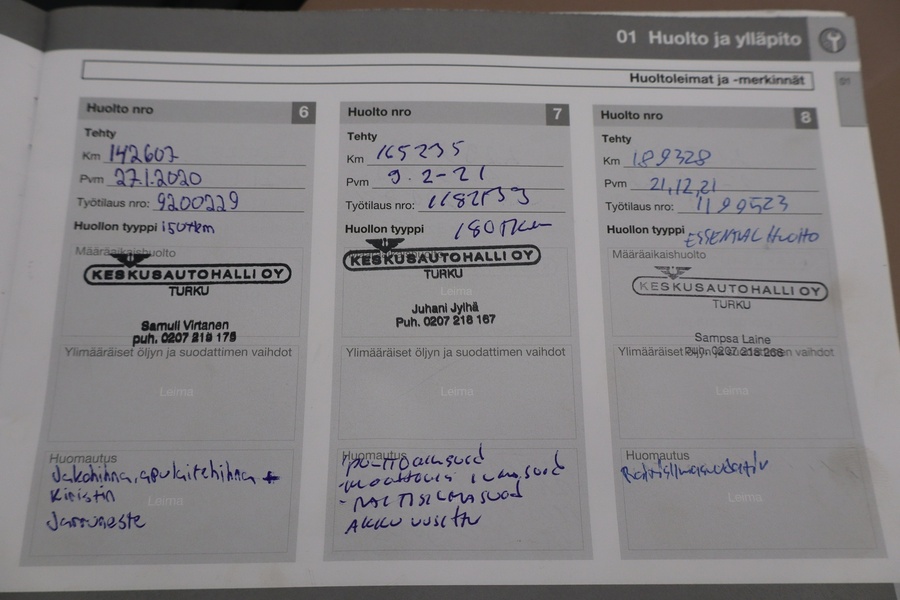 01 Huolto ja ylläpito
Huoltoleimat ja -merkinnät
01
Huolto nro 6
Tehty
Km 142607
Pvm 27.1.2020
Työtilaus nro: 9200229
Huollon tyyppi 150tkm
Määräaikaishuolto
KESKUSAUTOHALLI OY
TURKU
Samuli Virtanen
puh. 0207 218 175
Ylimääräiset öljyn ja suodattimen vaihdot
Leima
Huomautus
Jakohihna, apulaitehihna +
Kiristin
Leima
Jarruneste
Huolto nro 7
Tehty
Km 165235
Pvm 9.2-21
Työtilaus nro:
Huollon tyyppi 180Tkm
KESKUSAUTOHALLI OY
TURKU
Leima
Juhani Jylhä
Puh. 0207 218 167
Ylimääräiset öljyn ja suodattimen vaihdot
Leima
Huomautus
AKKU uusittu
Huolto nro 8
Tehty
Km 189328
Pvm 21,12,21
Työtilaus nro: 1199523
Huollon tyyppi ESSENTIAL Huolto
Määräaikaishuolto
KESKUSAUTOHALLI OY
TURKU
Sampsa Laine
Puh. 0207 218 268
Ylimääräiset öljyn ja suodattimen vaihdot
Leima
Huomautus
Raitisilmasuodatin
Leima